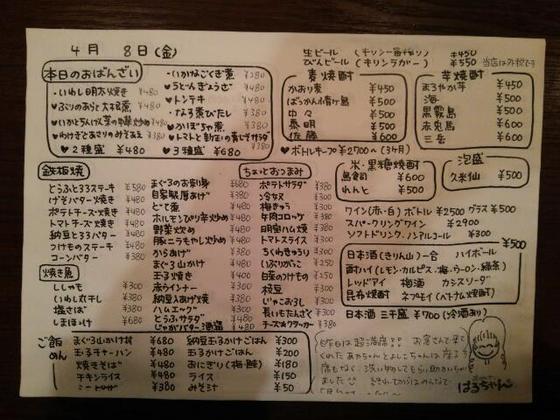 4月 8日(金)
本日のおばんざい
いわし明太焼き ¥480
ぶりのあらと大根煮 ¥480
♥2種盛 ¥480
¥380
うどんぎょうざ ¥480
♥トンテキ ¥480
なす煮びたし ¥380
♥かぼちゃ煮 ¥380
♥トマトと ¥380
♥3種盛 ¥680
鉄板焼
とうふとろろステーキ ¥580
げそバター焼き ¥480
ポテトチーズ焼き ¥480
トマトチーズ焼き ¥480
納豆とろろバター ¥480
つけものステーキ ¥480
コーンバター ¥380
焼き魚
ししゃも ¥300
いわし丸干し ¥300
塩さば ¥380
しまほっけ ¥680
まぐろのお刺身 ¥680
自家製厚あげ ¥380
とて煮 ¥380
ホルモンぴり辛炒め ¥480
野菜炒め ¥480
豚ニラもやし炒め ¥480
からあげ ¥380
まぐろ山かけ ¥480
玉子焼き ¥400
赤ウインナー ¥380
納豆入あげ焼 ¥380
ハムエッグ ¥380
とうふサラダ ¥480
じゃがバター酒盗 ¥480
ちょっとおつまみ
ポテトサラダ ¥380
冷奴 ¥300
梅きゅう ¥300
牛肉コロッケ ¥380
明宝ハム焼 ¥380
トマトスライス ¥300
ちくわきゅうり ¥300
いぶりがっこ ¥250
白菜のつけもの ¥150
枝豆 ¥300
じゃこおろし ¥300
長いもたんざく ¥300
チーズ★クラッカー ¥380
ご飯
めん
まぐろ山かけ丼 ¥680
玉子チャーハン ¥480
焼きそば ¥480
チキンライス ¥480
¥380
納豆玉子かけごはん ¥300
玉子かけごはん ¥200
おにぎり(梅・鮭) ¥180
ライス ¥150
みそ汁 ¥50
生ビール (キリン一番搾り) ¥450
びんビール (キリンラガー) ¥550 当店は外税です
麦焼酎
かおり麦 ¥450
ぱっかん青ヶ島 ¥500
中々 ¥500
泰明 ¥500
佐藤 ¥600
芋焼酎
まろやか芋 ¥450
海 ¥500
黒霧島 ¥500
赤兎馬 ¥600
三岳 ¥600
♥ボトルキープ ¥2700〜 (3ヶ月)
米・黒糖焼酎
鳥飼 ¥600
れんと ¥500
泡盛
久米仙 ¥500
ワイン(赤・白) ボトル ¥2500 グラス ¥500
スパークリングワイン ¥2900
ソフトドリンク・ノンアルコール ¥300
¥500
日本酒(きりん山)一合 ハイボール
酎ハイ(レモン・カルピス・梅・ウーロン・緑茶)
レッドアイ 梅酒 カシスソーダ
昆布焼酎 ネプモイ(ベトナム焼酎)
日本酒 三千盛 ¥700 (冷酒あり)
昨日は超満席!! お客さんで来て
くれた
席もなく、洗い物してもらい助かり
ました
はるちゃん